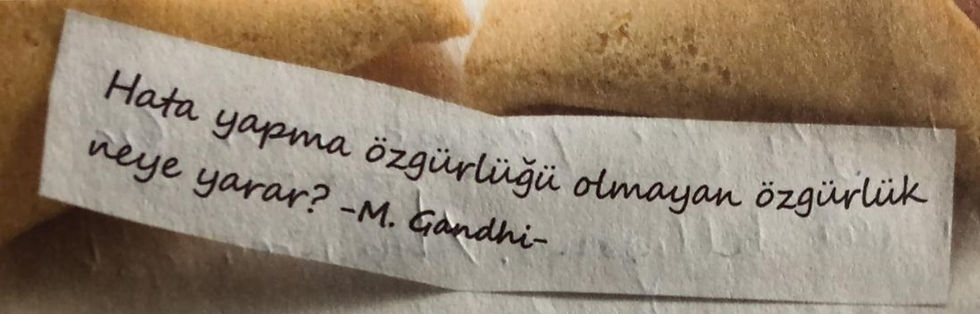 Hata yapma özgürlüğü olmayan özgürlük
neye yarar? -M. Gandhi-